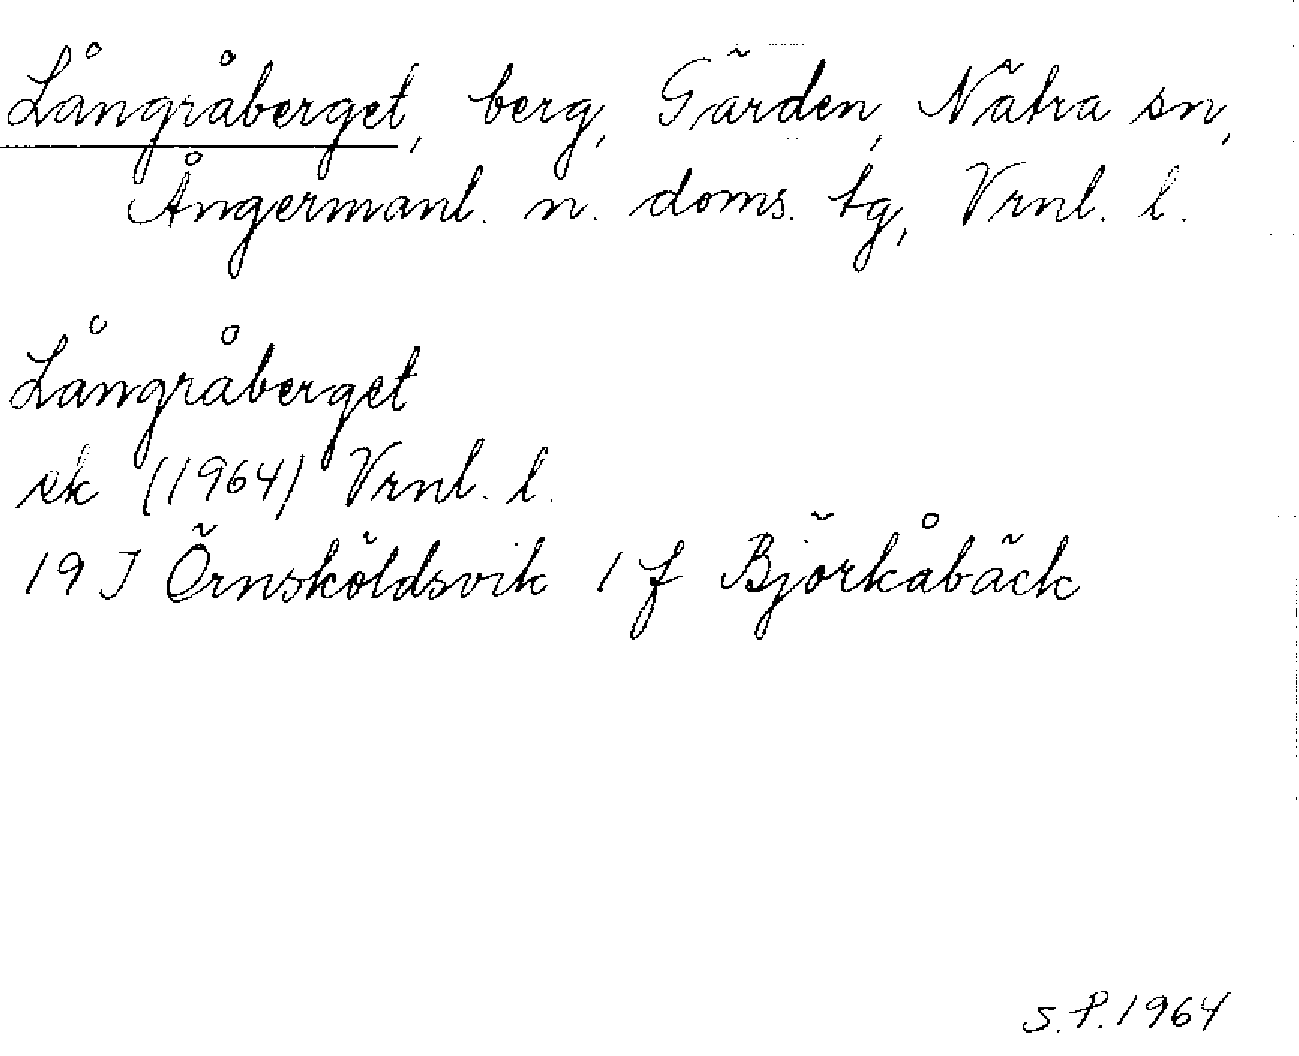 Långråberget, berg, Gärden, Nätra sn,
Ångermanl. n. doms. tg, Vrnl. l.
Långråberget
ek (1964) Vrnl. l.
19 J Örnsköldsvik 1 f Björkåbäck
S.P.1964